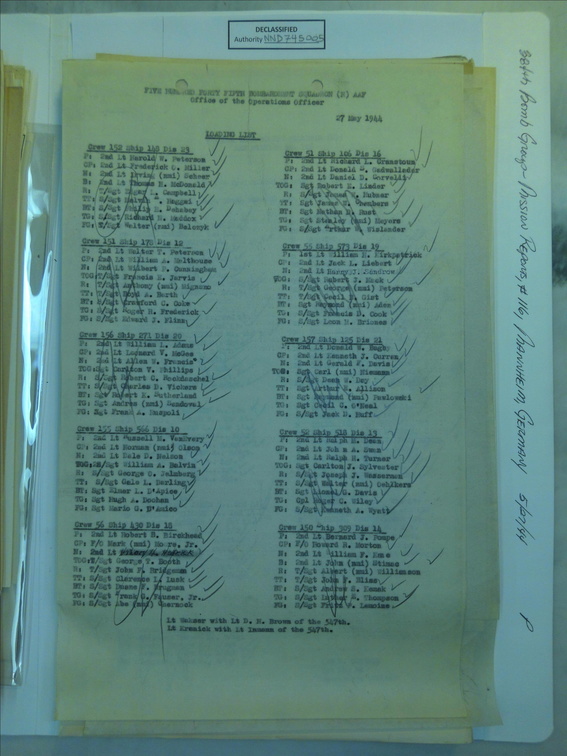 DECLASSIFIED
Authority NND 745005
FIVE HUNDRED FORTY FIFTH BOMBARDMENT SQUADRON (H) AAF
Office of the Operations Officer
27 May 1944
LOADING LIST
Crew 152 Ship 148 Dis 23
P: 2nd Lt Harold W. Peterson
CP: 2nd Lt Frederick G. Miller
N: 2nd Lt Irving (nmi)
B: 2nd Lt Thomas H. McDonald
R: T/Sgt Edgar L. Campbell
TT: S/Sgt Melvin
BT: S/Sgt
TG: S/Sgt Richard H. Maddox
FG: S/Sgt Walter (nmi)
Crew 151 Ship 170 Dis 12
P: 2nd Lt Walter T. Peterson
CP: 2nd Lt William A. Holthouse
N: 2nd Lt Wilbert P. Cunningham
TOG: T/Sgt Francis E. Jarvis
R: Sgt Anthony (nmi)
TT: Sgt Floyd A. Barth
BT: Sgt Crawford C. Cobb
TG: Sgt Roger R. Frederick
FG: Sgt Edward J. Flinn
Crew 156 Ship 271 Dis 20
P: 2nd Lt William L. Adams
CP: 2nd Lt Leonard V. McGee
N: 2nd Lt Allen W. Francis
TOG: Sgt Carlton V. Phillips
R: S/Sgt Robert C.
TT: S/Sgt Charles D. Vickers
BT: Sgt Robert E. Sutherland
TG: Sgt Andres (nmi) Sandoval
FG: Sgt Frank A. Raspoli
Crew 155 Ship 566 Dis 10
P: 2nd Lt Russell H.
CP: 2nd Lt Norman (nmi) Olson
N: 2nd Lt Dale D. Nelson
TOG: Sgt William A. Dalvin
R: S/Sgt George S. Jelnberg
TT: S/Sgt Gale L. Serling
BT: Sgt Elmer L. D'Apice
TG: Sgt Hugh A. Meehan
FG: Sgt Mario G. D'Amico
Crew 56 Ship 430 Dis 15
P: 2nd Lt Robert B. Hirshhead
CP: F/O Mark (nmi) Moore, Jr.
N: 2nd Lt
TOG: T/Sgt George T. Booth
R: T/Sgt John F. Bridgman
TT: S/Sgt Clarence L. Lusk
BT: S/Sgt Duane F. Brugman
TG: S/Sgt Frank G. Hauser, Jr.
FG: S/Sgt Abe (nmi) Chernock
Crew 51 Ship 106 Dis 16
P: 2nd Lt Richard L. Grunstour
CP: 2nd Lt Donald G. Cadwallader
N: 2nd Lt Daniel D. Corvelli
TOG: Sgt Robert E. Lieder
R: S/Sgt James
TT: Sgt James
BT: Sgt Nathan D. Hunt
TG: Sgt Stanley (nmi) Mayers
FG: Sgt Arthur R. Wislander
Crew 55 Ship 573 Dis 19
P: 1st Lt William E. Kirkpatrick
CP: 2nd Lt Jack L. Liebert
N: 2nd Lt
TOG: S/Sgt Robert J. Keck
R: T/Sgt George (nmi) Peterson
TT: T/Sgt Cecil R. Gist
BT: Sgt Raymond (nmi) Aden
TG: S/Sgt Francis D. Cook
FG: S/Sgt Leon H. Briones
Crew 157 Ship 125 Dis 21
P: 2nd Lt Donald W. Bagby
CP: 2nd Lt Kenneth J. Curran
N: 2nd Lt Gerald F. Davis
TOG: Sgt Carl (nmi) Niemann
R: S/Sgt Dean W. Day
TT: Sgt Arthur S. Allison
BT: Sgt Raymond (nmi) Pawlowski
TG: Sgt Cecil C. O'Neal
FG: S/Sgt Jack D. Huff
Crew 52 Ship 518 Dis 13
P: 2nd Lt Ralph E. Dean
CP: 2nd Lt John A. Swan
N: 2nd Lt Ralph E. Turner
TOG: Sgt Carlton J. Sylvester
R: S/Sgt Joseph J. Wasserman
TT: S/Sgt Walter (nmi) Oehlkers
BT: Sgt Lionel G. Davis
TG: Cpl Roger C. Wiley
FG: S/Sgt Kenneth A. Wyatt
Crew 150 Ship 309 Dis 14
P: 2nd Lt Bernard J. Pompa
CP: F/O Howard H. Morton
N: 2nd Lt William F.
B: 2nd Lt John (nmi) Stimac
R: T/Sgt Albert (nmi) Williamson
TT: T/Sgt John F. Elias
BT: S/Sgt Andrew E.
TG: S/Sgt Luther G. Thompson
FG: S/Sgt Frank F. Lamoise
Lt Hakmar with Lt D. H. Brown of the 547th.
Lt Kresick with Lt Inman of the 547th.
384th Bomb Group - Mission Reports, #116, Mannheim, Germany 5/27/44 P